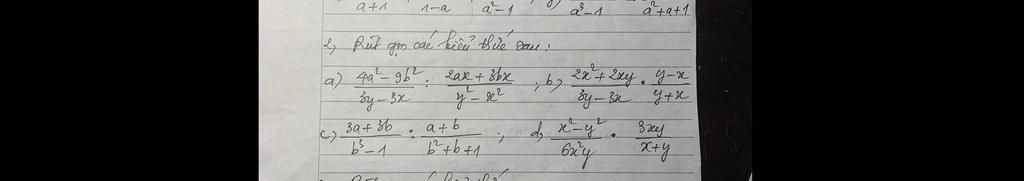 a+1 1-a a²-1 a³-1 a²+a+1
2, Rút gọn các biểu thức sau:
a) (4a²-9b²)/(3y-3x) : (2ax+3bx)/(y²-x²) ; b) (2x²+2xy)/(3y-3x) . (y-x)/(y+x)
c) (3a+3b)/(b³-1) : (a+b)/(b²+b+1) ; d) (x²-y²)/(6x²y) . (3xy)/(x+y)